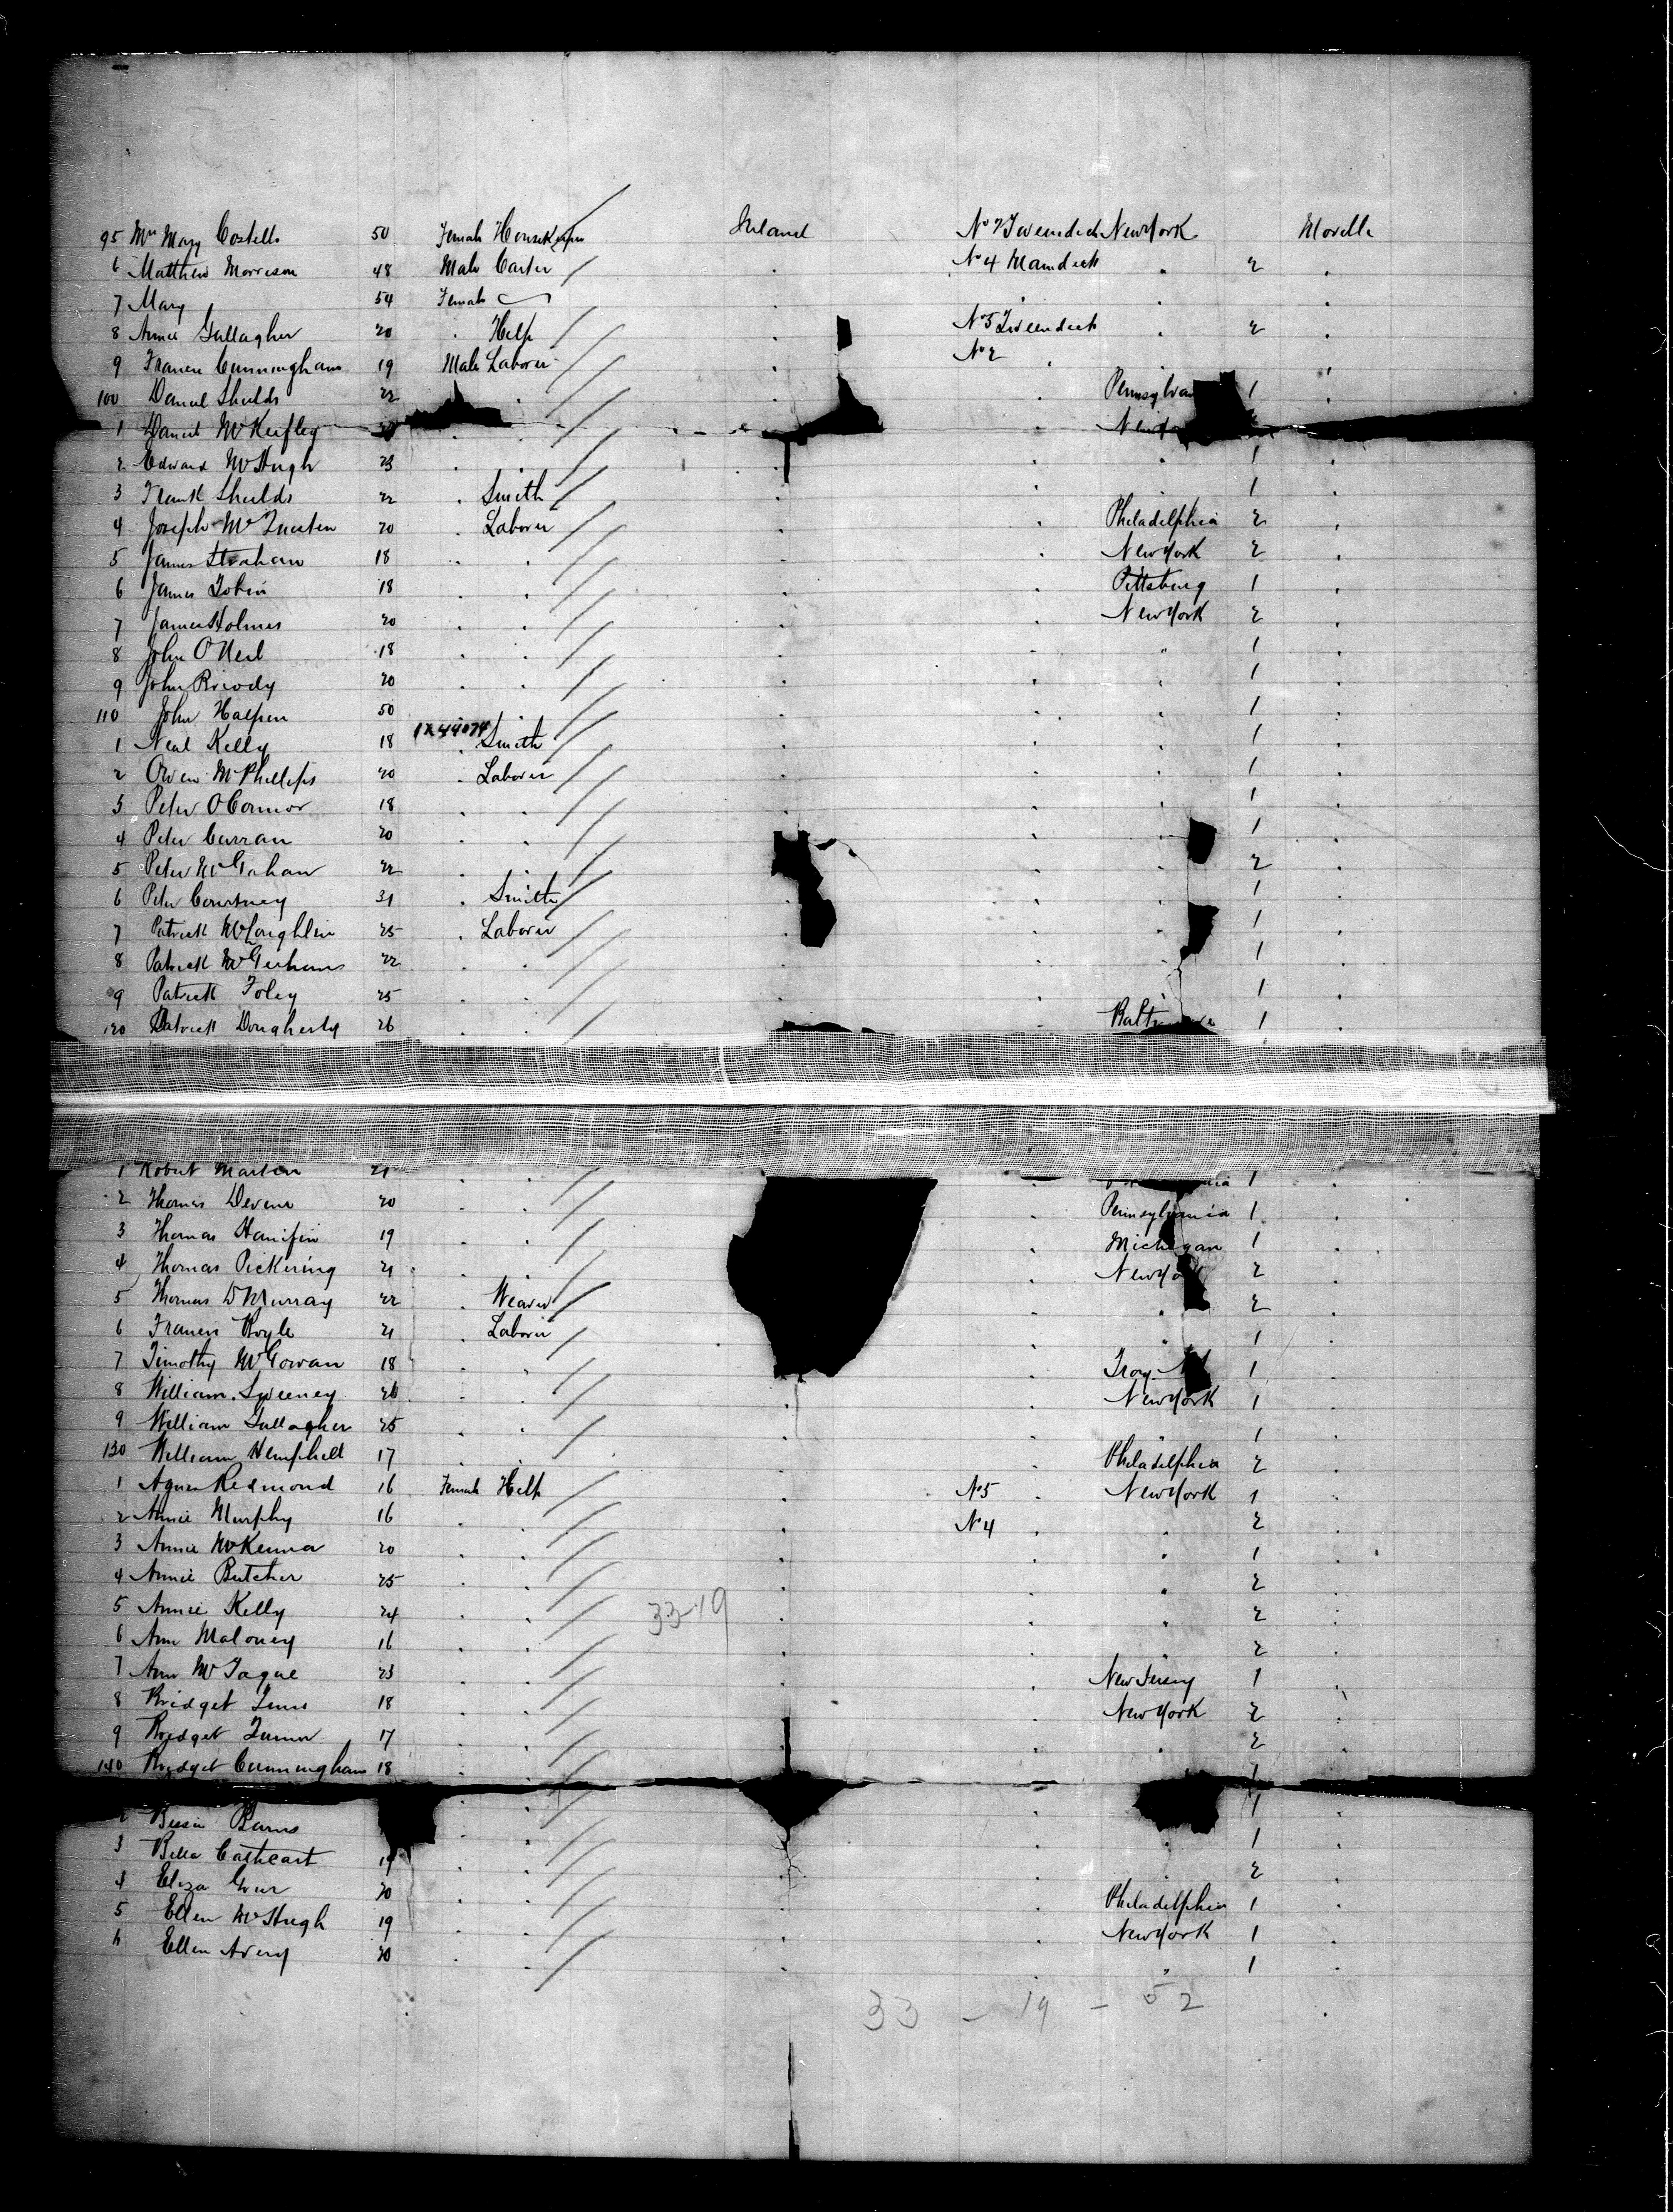 95 Mrs Mary Costello 50 Female Housekeeper Ireland No 7 Tweendeck New York Moville
6 Matthew Morrison 48 Male Carter . No 4 Maindeck . 2 .
7 Mary 54 Female . . . .
8 Annie Gallagher 20 . Help . No 5 Tweendeck . 2 .
9 Francis Cunningham 19 Male Laborer . No 2 . .
100 Daniel Shields 22 . . . Pennsylva 1 .
1 Daniel . . New
2 Edward McHugh 23 . . . . . 1 .
3 Frank Shields 22 . Smith . . 1 .
4 Joseph 20 . Laborer . . Philadelphia 2 .
5 James Strahan 18 . . . . New York 2 .
6 James Tobin 18 . . . . Pittsburg 1 .
7 James Holmes 20 . . . . New York 2 .
8 John O'Neil 18 . . . . " 1 .
9 John Briody 20 . . . . . 1 .
110 John Halpin 50 . . . . 1 .
1X44074
1 Neal Kelly 18 . Smith . . . 1 .
2 Owen McPhillips 20 . Laborer . . . 1 .
3 Peter O'Connor 18 . . . . . 1 .
4 Peter Curran 20 . . . . . 1 .
5 Peter McGahan 22 . . . . 2 .
6 Peter Courtney 31 . Smith . . 1 .
7 Patrick McLoughlin 25 . Laborer . . 1 .
8 Patrick 22 . . . . 1 .
9 Patrick Foley 25 . . . . 1 .
120 Patrick Dougherty 26 . . . Baltimore 1 .
1 Robert Martin 21 . . 1 .
2 Thomas Devine 20 . . . Pennsylvania 1 .
3 Thomas Hanifin 19 . . . Michigan 1 .
4 Thomas Pickering 21 . . . New York 2 .
5 Thomas D Murray 22 . Weaver . . 2 .
6 Francis Boyle 21 . Laborer . . 1 .
7 Timothy McGowan 18 . . . Troy N 1 .
8 William Sweeney 26 . . . . New York 1 .
9 William Gallagher 25 . . . . . 1 .
130 William Hemphill 17 . . . . Philadelphia 2 .
1 Agnes Redmond 16 Female Help . No 5 . New York 1 .
2 Annie Murphy 16 . . . No 4 . . 2 .
3 Annie McKenna 20 . . . . . 1 .
4 Annie Butcher 25 . . . . . 2 .
5 Annie Kelly 24 . . 33-19 . . . 2 .
6 Ann Maloney 16 . . . . . 2 .
7 Ann McTague 23 . . . . New Jersey 1 .
8 Bridget 18 . . . . New York 2 .
9 Bridget 17 . . . . . 2 .
140 Bridget Cunningham 18 . . . .
1 .
2 Bessie Burns . . . . 1 .
3 Bella Cathcart 19 . . . . . 2 .
4 Eliza 20 . . . . Philadelphia 1 .
5 Ellen McHugh 19 . . . . New York 1 .
6 Ellen Avery 20 . . . . " 1 .
33 - 19 - 52